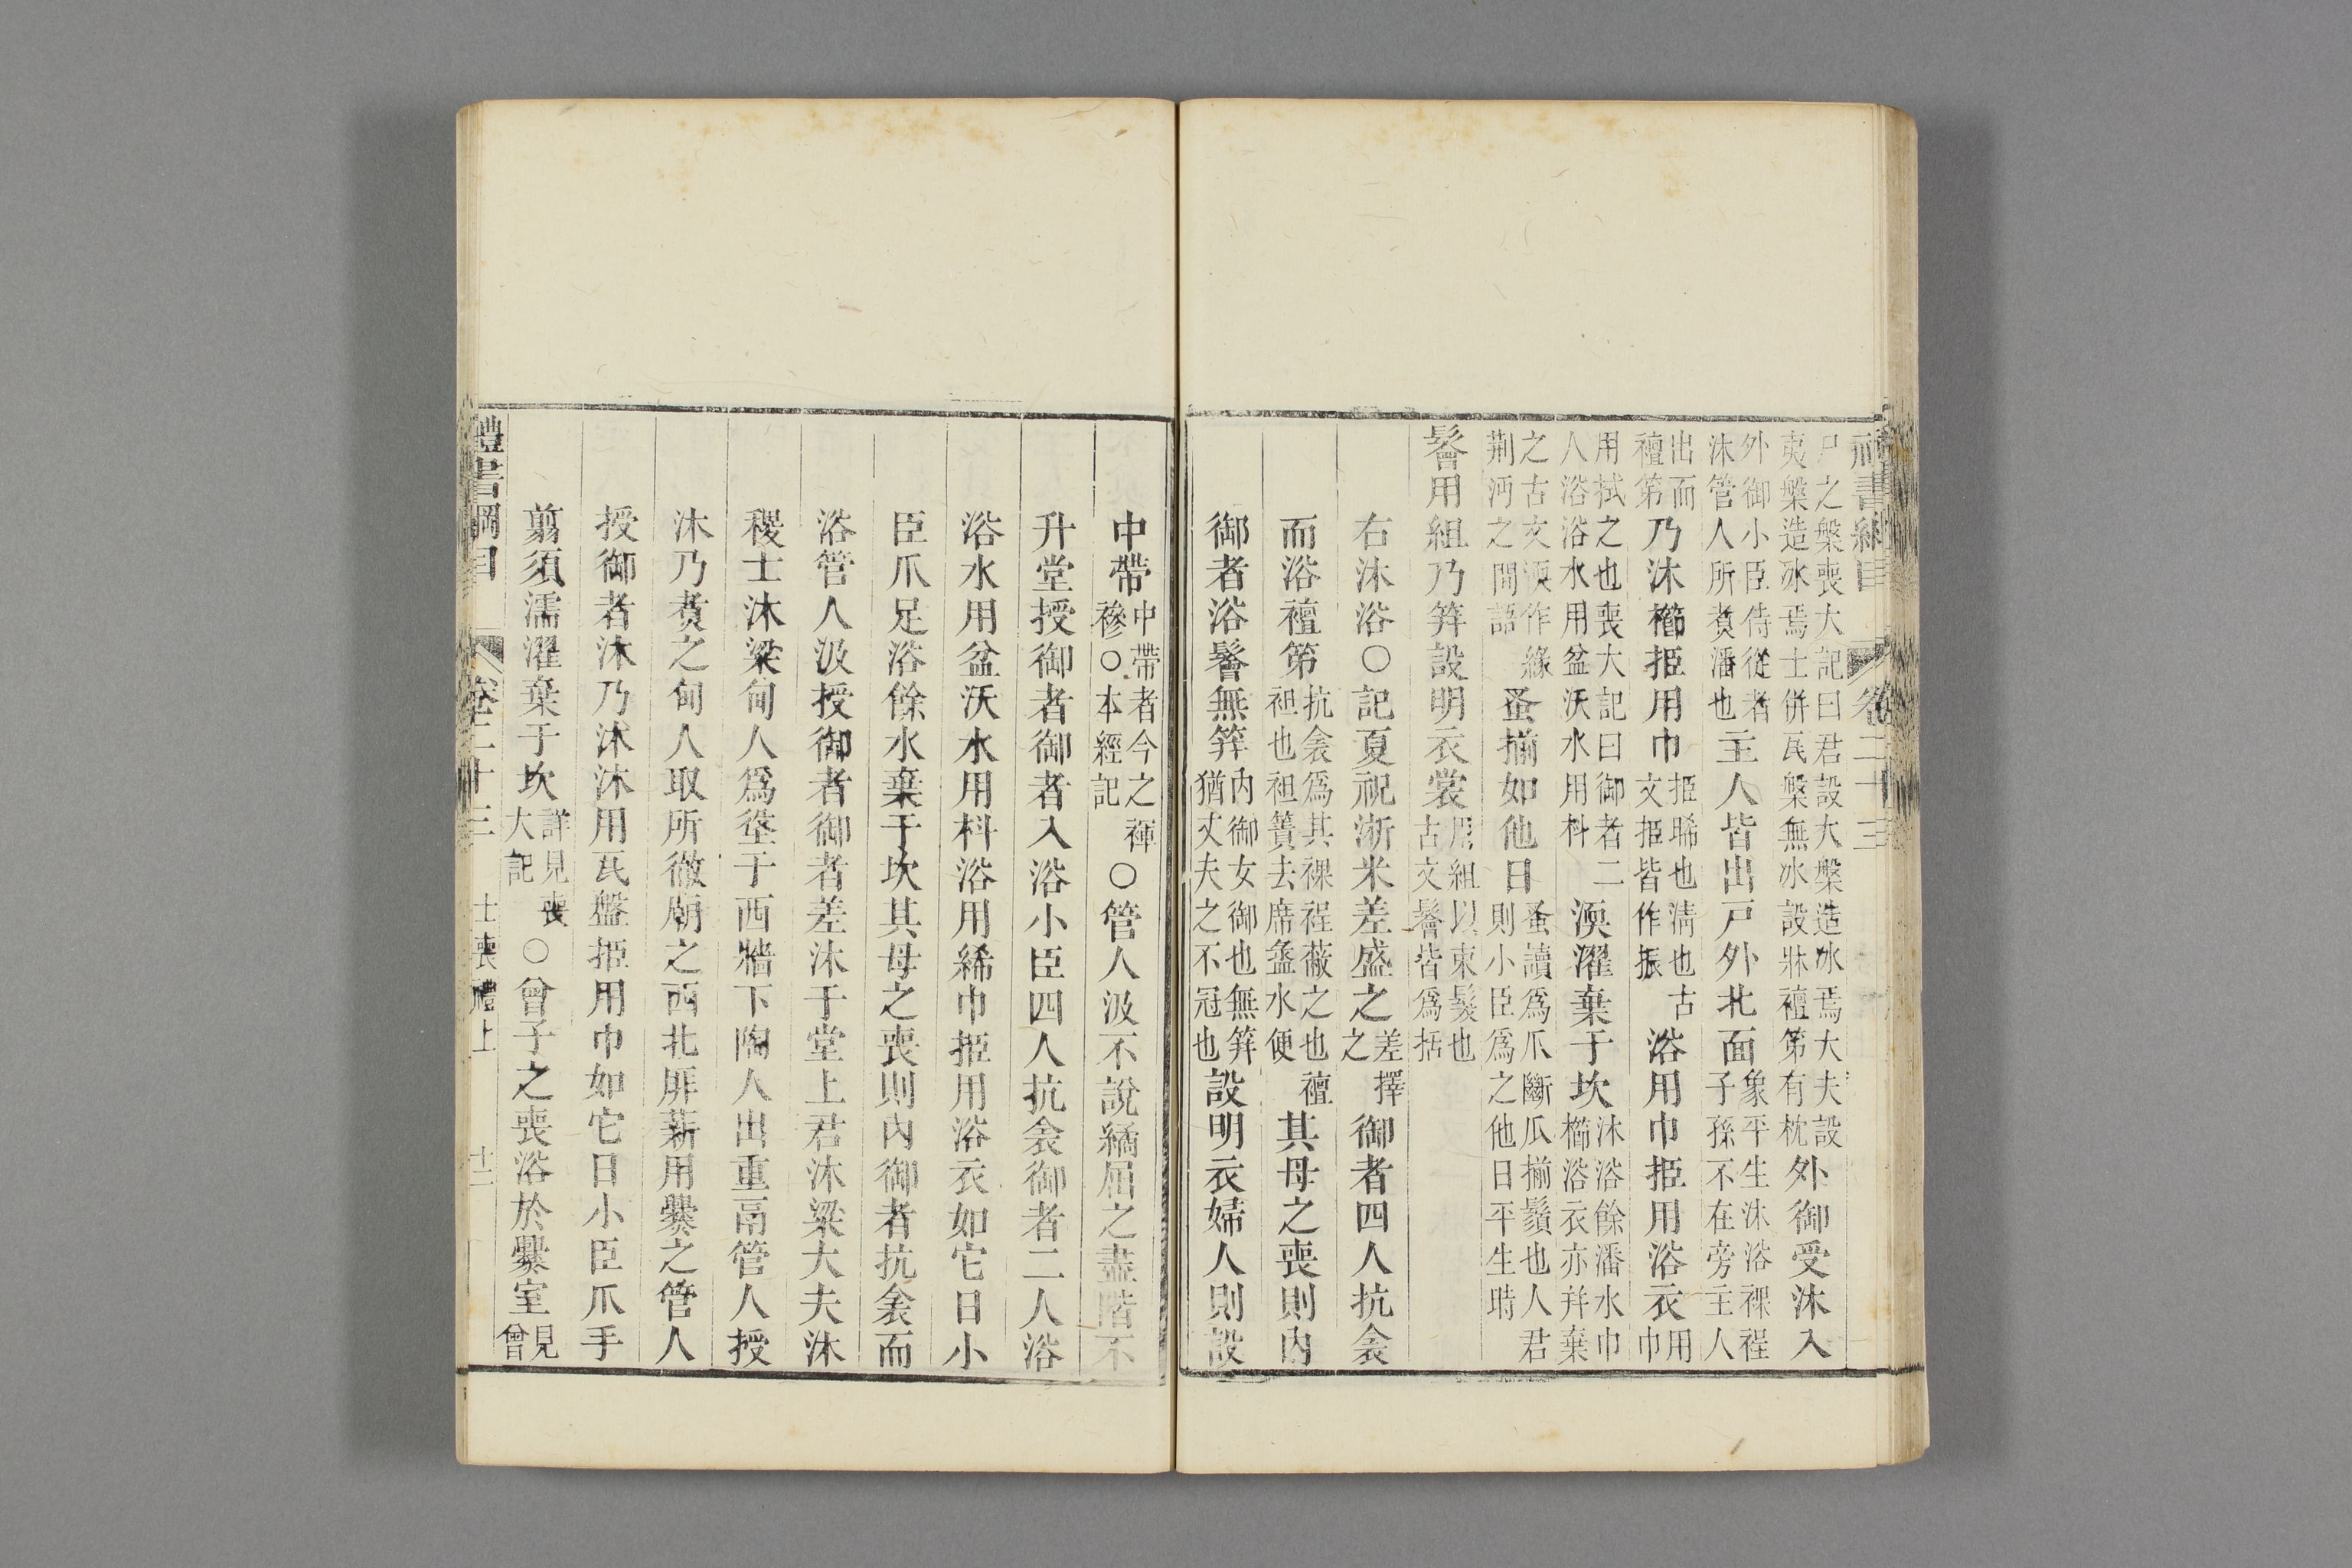 禮書綱目 卷二十三
尸之槃喪大記曰君設大槃造冰焉大夫設
夷槃造冰焉士併瓦槃無冰設牀襢第有枕外御受沐入
外御小臣侍從者
沐管人所煑潘也主人皆出戸外北面象平生沐浴裸裎
子孫不在旁主人
出而
襢第乃沐櫛挋用巾挋晞也淸也古
文挋皆作振浴用巾挋用浴衣用
巾
用拭之也喪大記曰御者二
人浴浴水用盆沃水用枓渜濯棄于坎沐浴餘潘水巾
櫛浴衣亦幷棄
之古文渜作緣
荆沔之間語蚤揃如他日蚤讀爲爪斷爪揃鬚也人君
則小臣爲之他日平生時
鬠用組乃笄設明衣裳用組以束髮也
古文鬠皆爲括
右沐浴○記夏祝淅米差盛之差擇
之御者四人抗衾
而浴襢第抗衾爲其裸裎蔽之也襢
袒也袒簀去席盝水便其母之喪則内
御者浴鬠無笄内御女御也無笄
猶丈夫之不冠也設明衣婦人則設
中帶中帶者今之褌
襂○本經記○管人汲不說繘屈之盡階不
升堂授御者御者入浴小臣四人抗衾御者二人浴
浴水用盆沃水用枓浴用絺巾挋用浴衣如它日小
臣爪足浴餘水棄于坎其母之喪則内御者抗衾而
浴管人汲授御者御者差沐于堂上君沐粱大夫沐
稷士沐粱甸人爲垼于西牆下陶人出重鬲管人授
沐乃煑之甸人取所徹廟之西北厞薪用爨之管人
授御者沐乃沐沐用瓦盤挋用巾如它日小臣爪手
翦須濡濯棄于坎詳見喪
大記○曾子之喪浴於爨室見
曾
禮書綱目 卷二十三 士喪禮上 十二